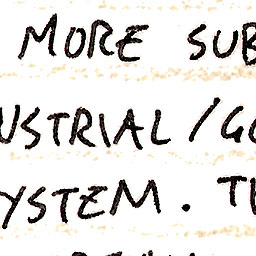 MORE SUB
USTRIAL / GO
YSTEM. T